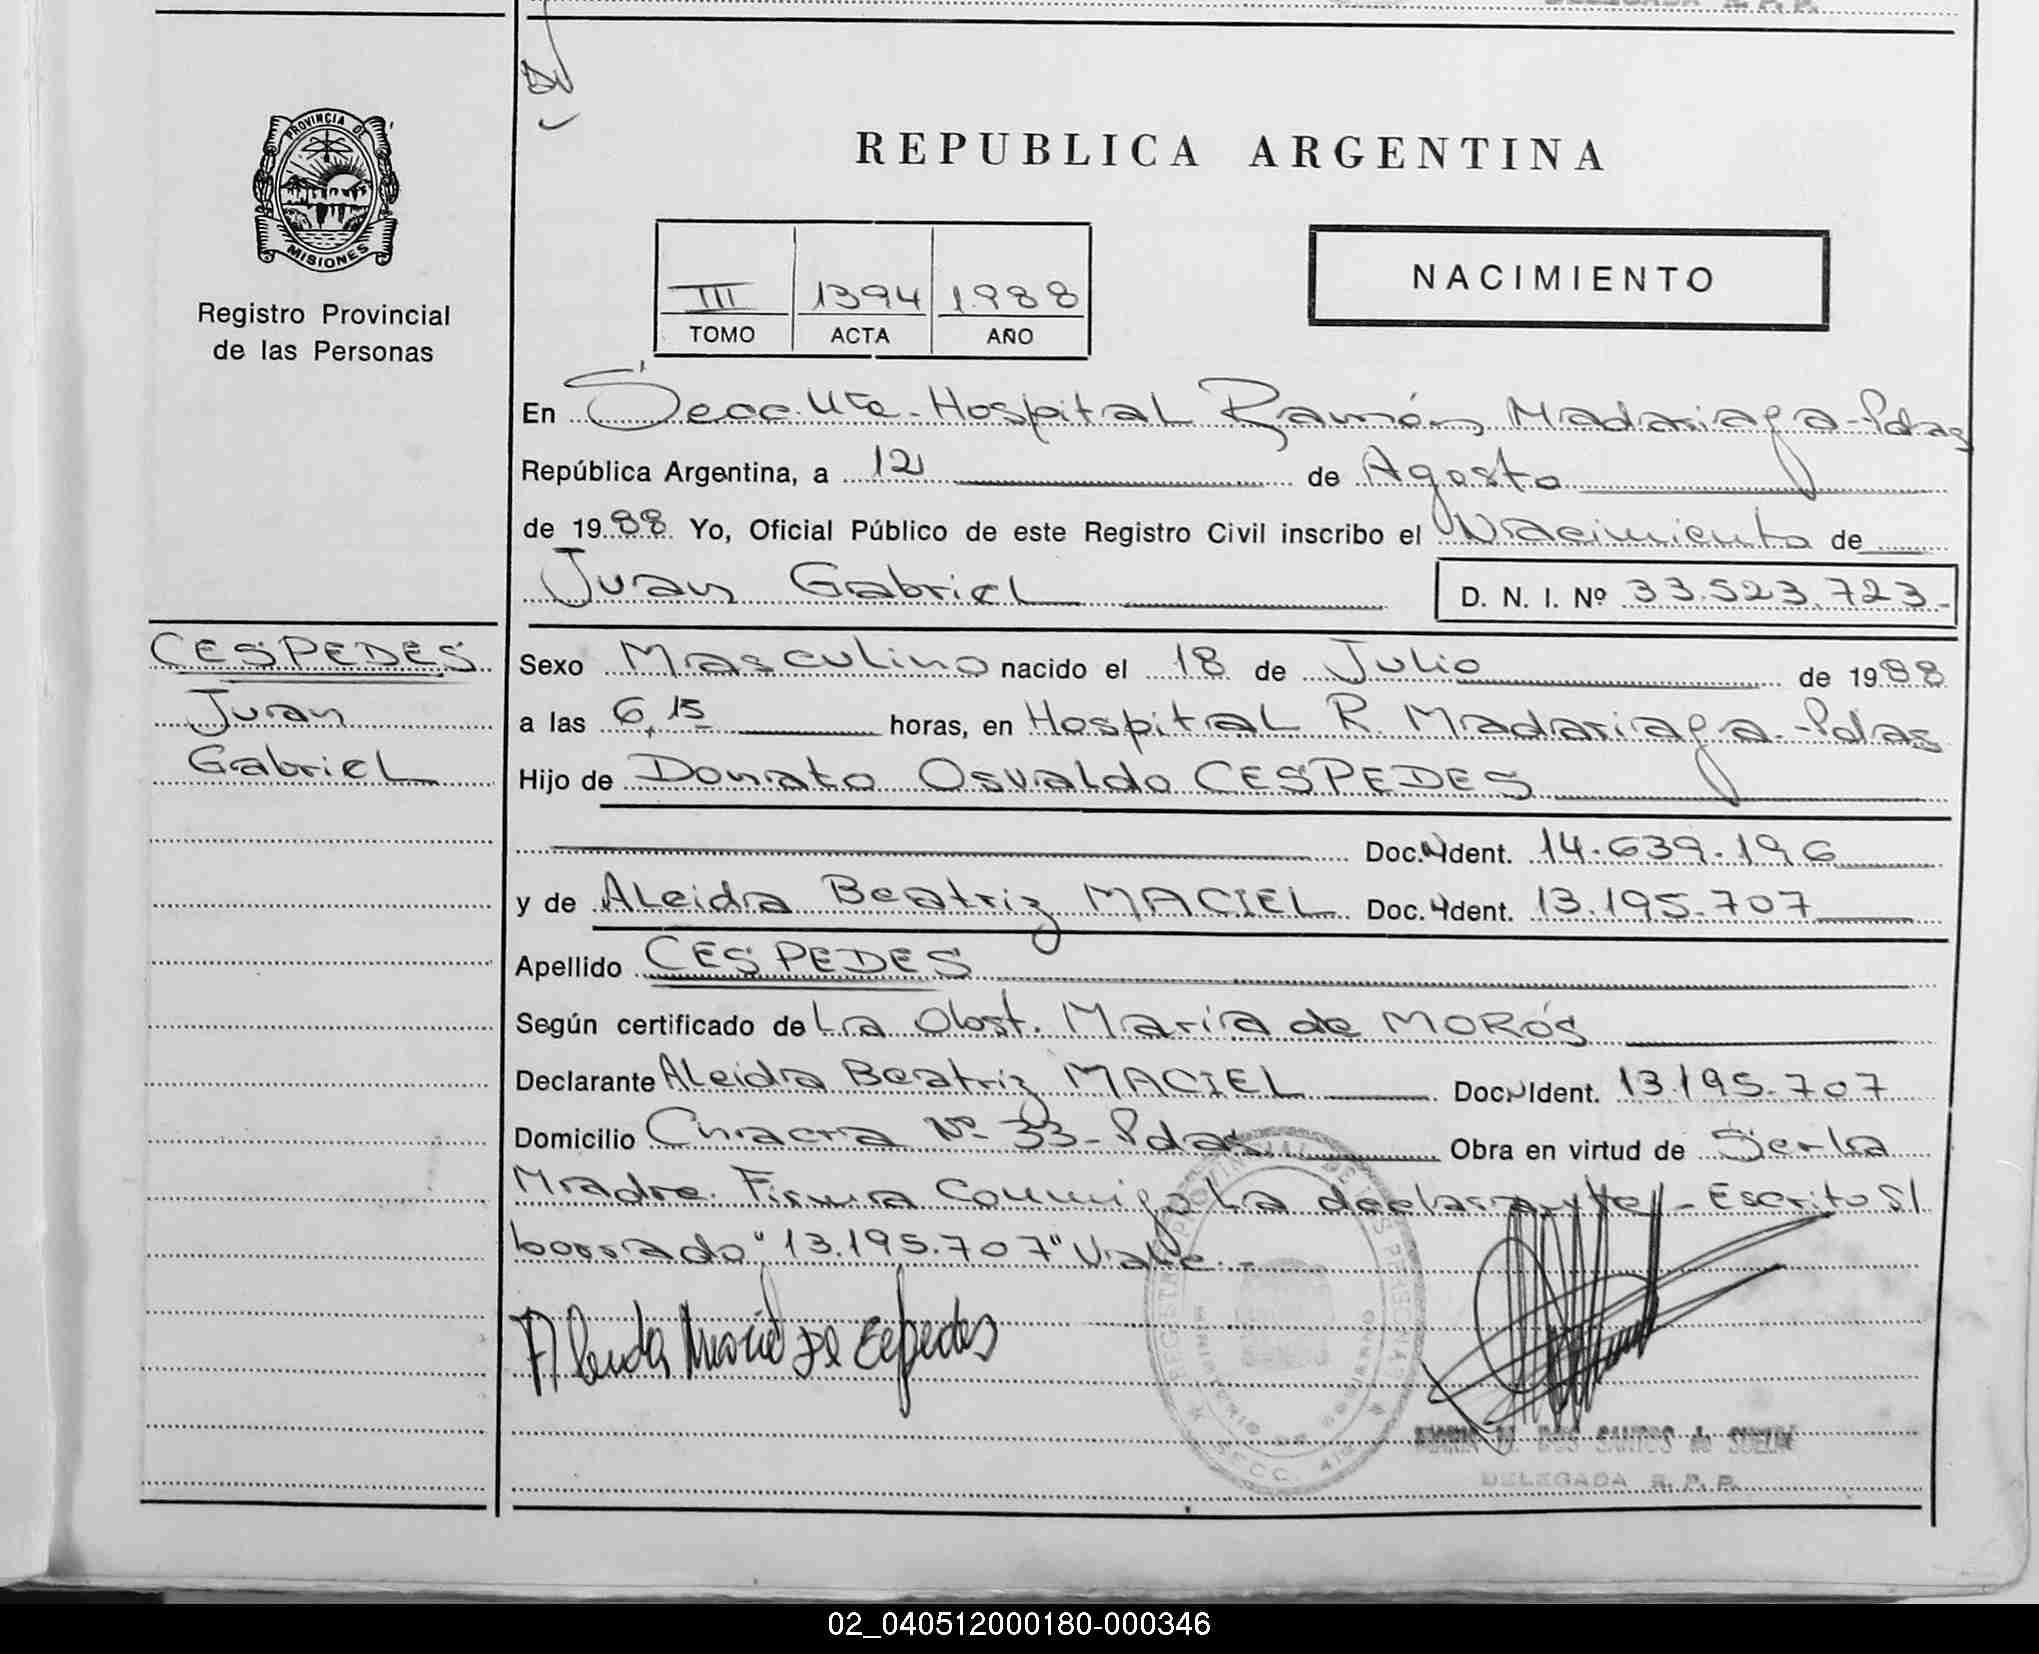 PROVINCIA DE
MISIONES
Registro Provincial
de las Personas
CESPEDES
Juan
Gabriel
REPUBLICA ARGENTINA
III 1394 1988
TOMO ACTA AÑO
NACIMIENTO
En Secc. 4ta. Hospital Ramón Madariaga-Pdas
República Argentina, a 12 de Agosto
de 1988 Yo, Oficial Público de este Registro Civil inscribo el Nacimiento de
Juan Gabriel D. N. I. Nº 33.523.723-
Sexo Masculino nacido el 18 de Julio de 1988
a las 6,15 horas, en Hospital R. Madariaga.-Pdas
Hijo de Donato Osvaldo CESPEDES
Doc. Ident. 14.639.196
y de Aleida Beatriz MACIEL Doc. Ident. 13.195.707
Apellido CESPEDES
Según certificado de La Obst. María de MORÓS
Declarante Aleida Beatriz MACIEL Doc. Ident. 13.195.707
Domicilio Chacra Nº 33-Pdas Obra en virtud de Ser la
Madre. Firma Conmigo La declarante - Escrito S/
borrado "13.195.707" Vale.-
Aleida Maciel De Cespedes
DOS SANTOS de
DELEGADA R. P. P.
02_040512000180-000346